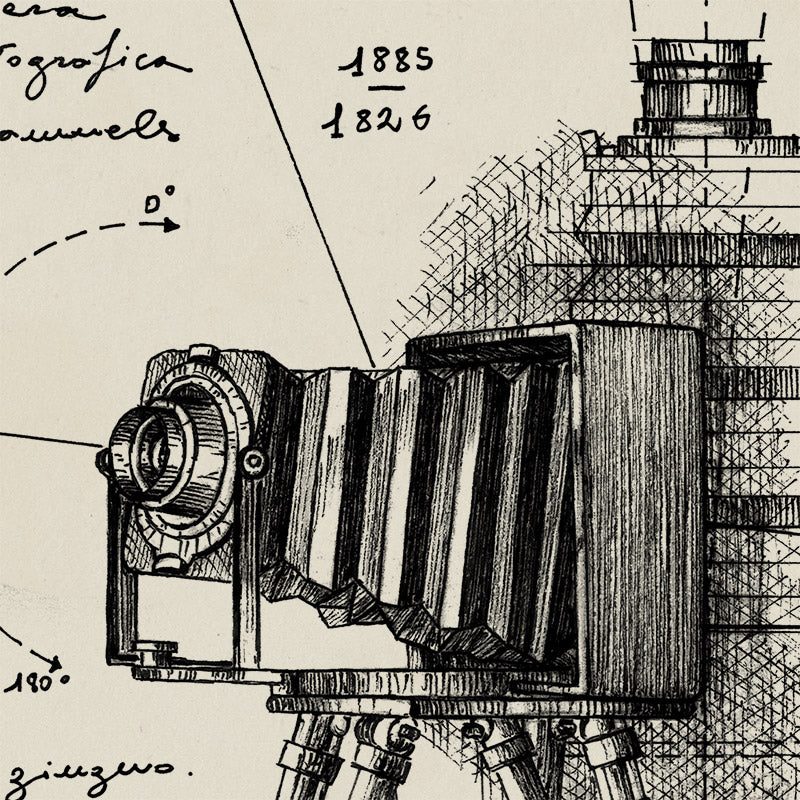 era
tografica
1885
1826
D°
180°